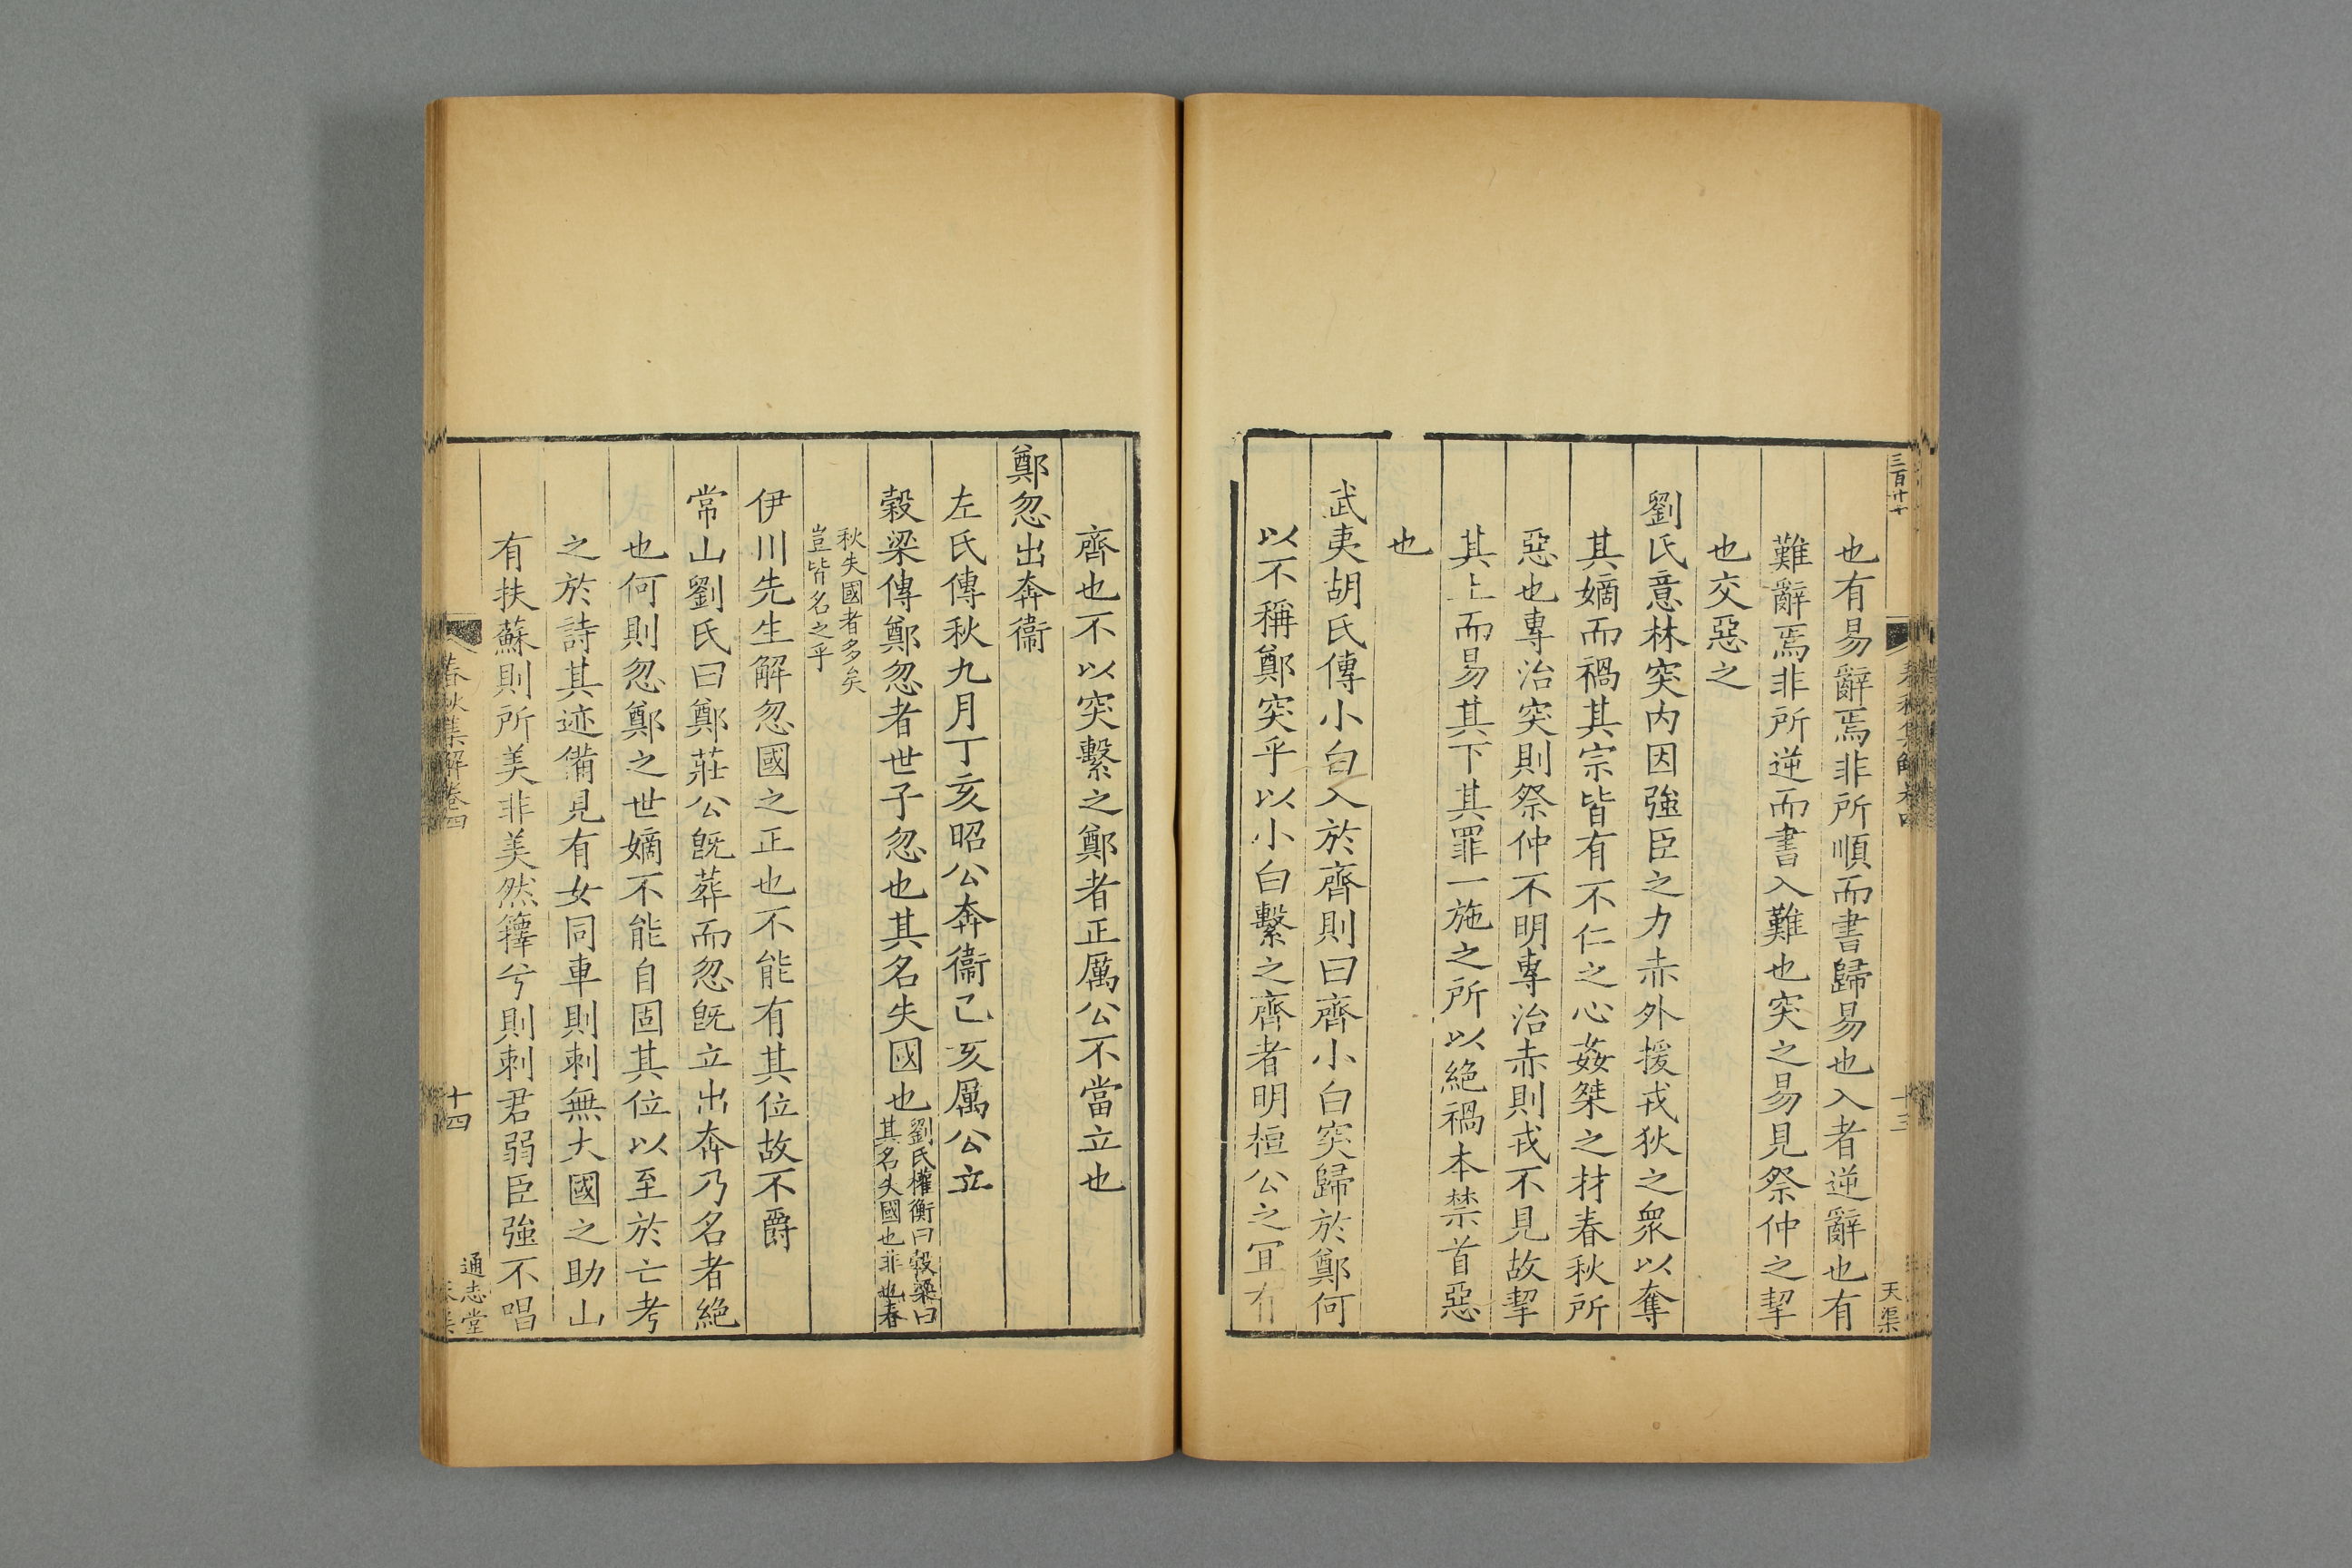 三百廿十
十三
天渠
也有易辭焉非所順而書歸易也入者逆辭也有
難辭焉非所逆而書入難也突之易見祭仲之挈
也交惡之
劉氏意林突内因強臣之力赤外援戎狄之衆以奪
其嫡而禍其宗皆有不仁之心姦桀之材春秋所
惡也專治突則祭仲不明專治赤則戎不見故挈
其上而易其下其罪一施之所以絶禍本禁首惡
也
武夷胡氏傳小白入於齊則曰齊小白突歸於鄭何
以不稱鄭突乎以小白繫之齊者明桓公之宜有
齊也不以突繫之鄭者正厲公不當立也
鄭忽出奔衞
左氏傳秋九月丁亥昭公奔衞己亥厲公立
穀梁傳鄭忽者世子忽也其名失國也劉氏權衡曰穀梁曰
其名失國也非也春
秋失國者多矣
豈皆名之乎
伊川先生解忽國之正也不能有其位故不爵
常山劉氏曰鄭莊公旣葬而忽旣立出奔乃名者絶
也何則忽鄭之世嫡不能自固其位以至於亡考
之於詩其迹備見有女同車則刺無大國之助山
有扶蘇則所美非美然籜兮則刺君弱臣強不唱
春秋集解卷四
十四
通志堂